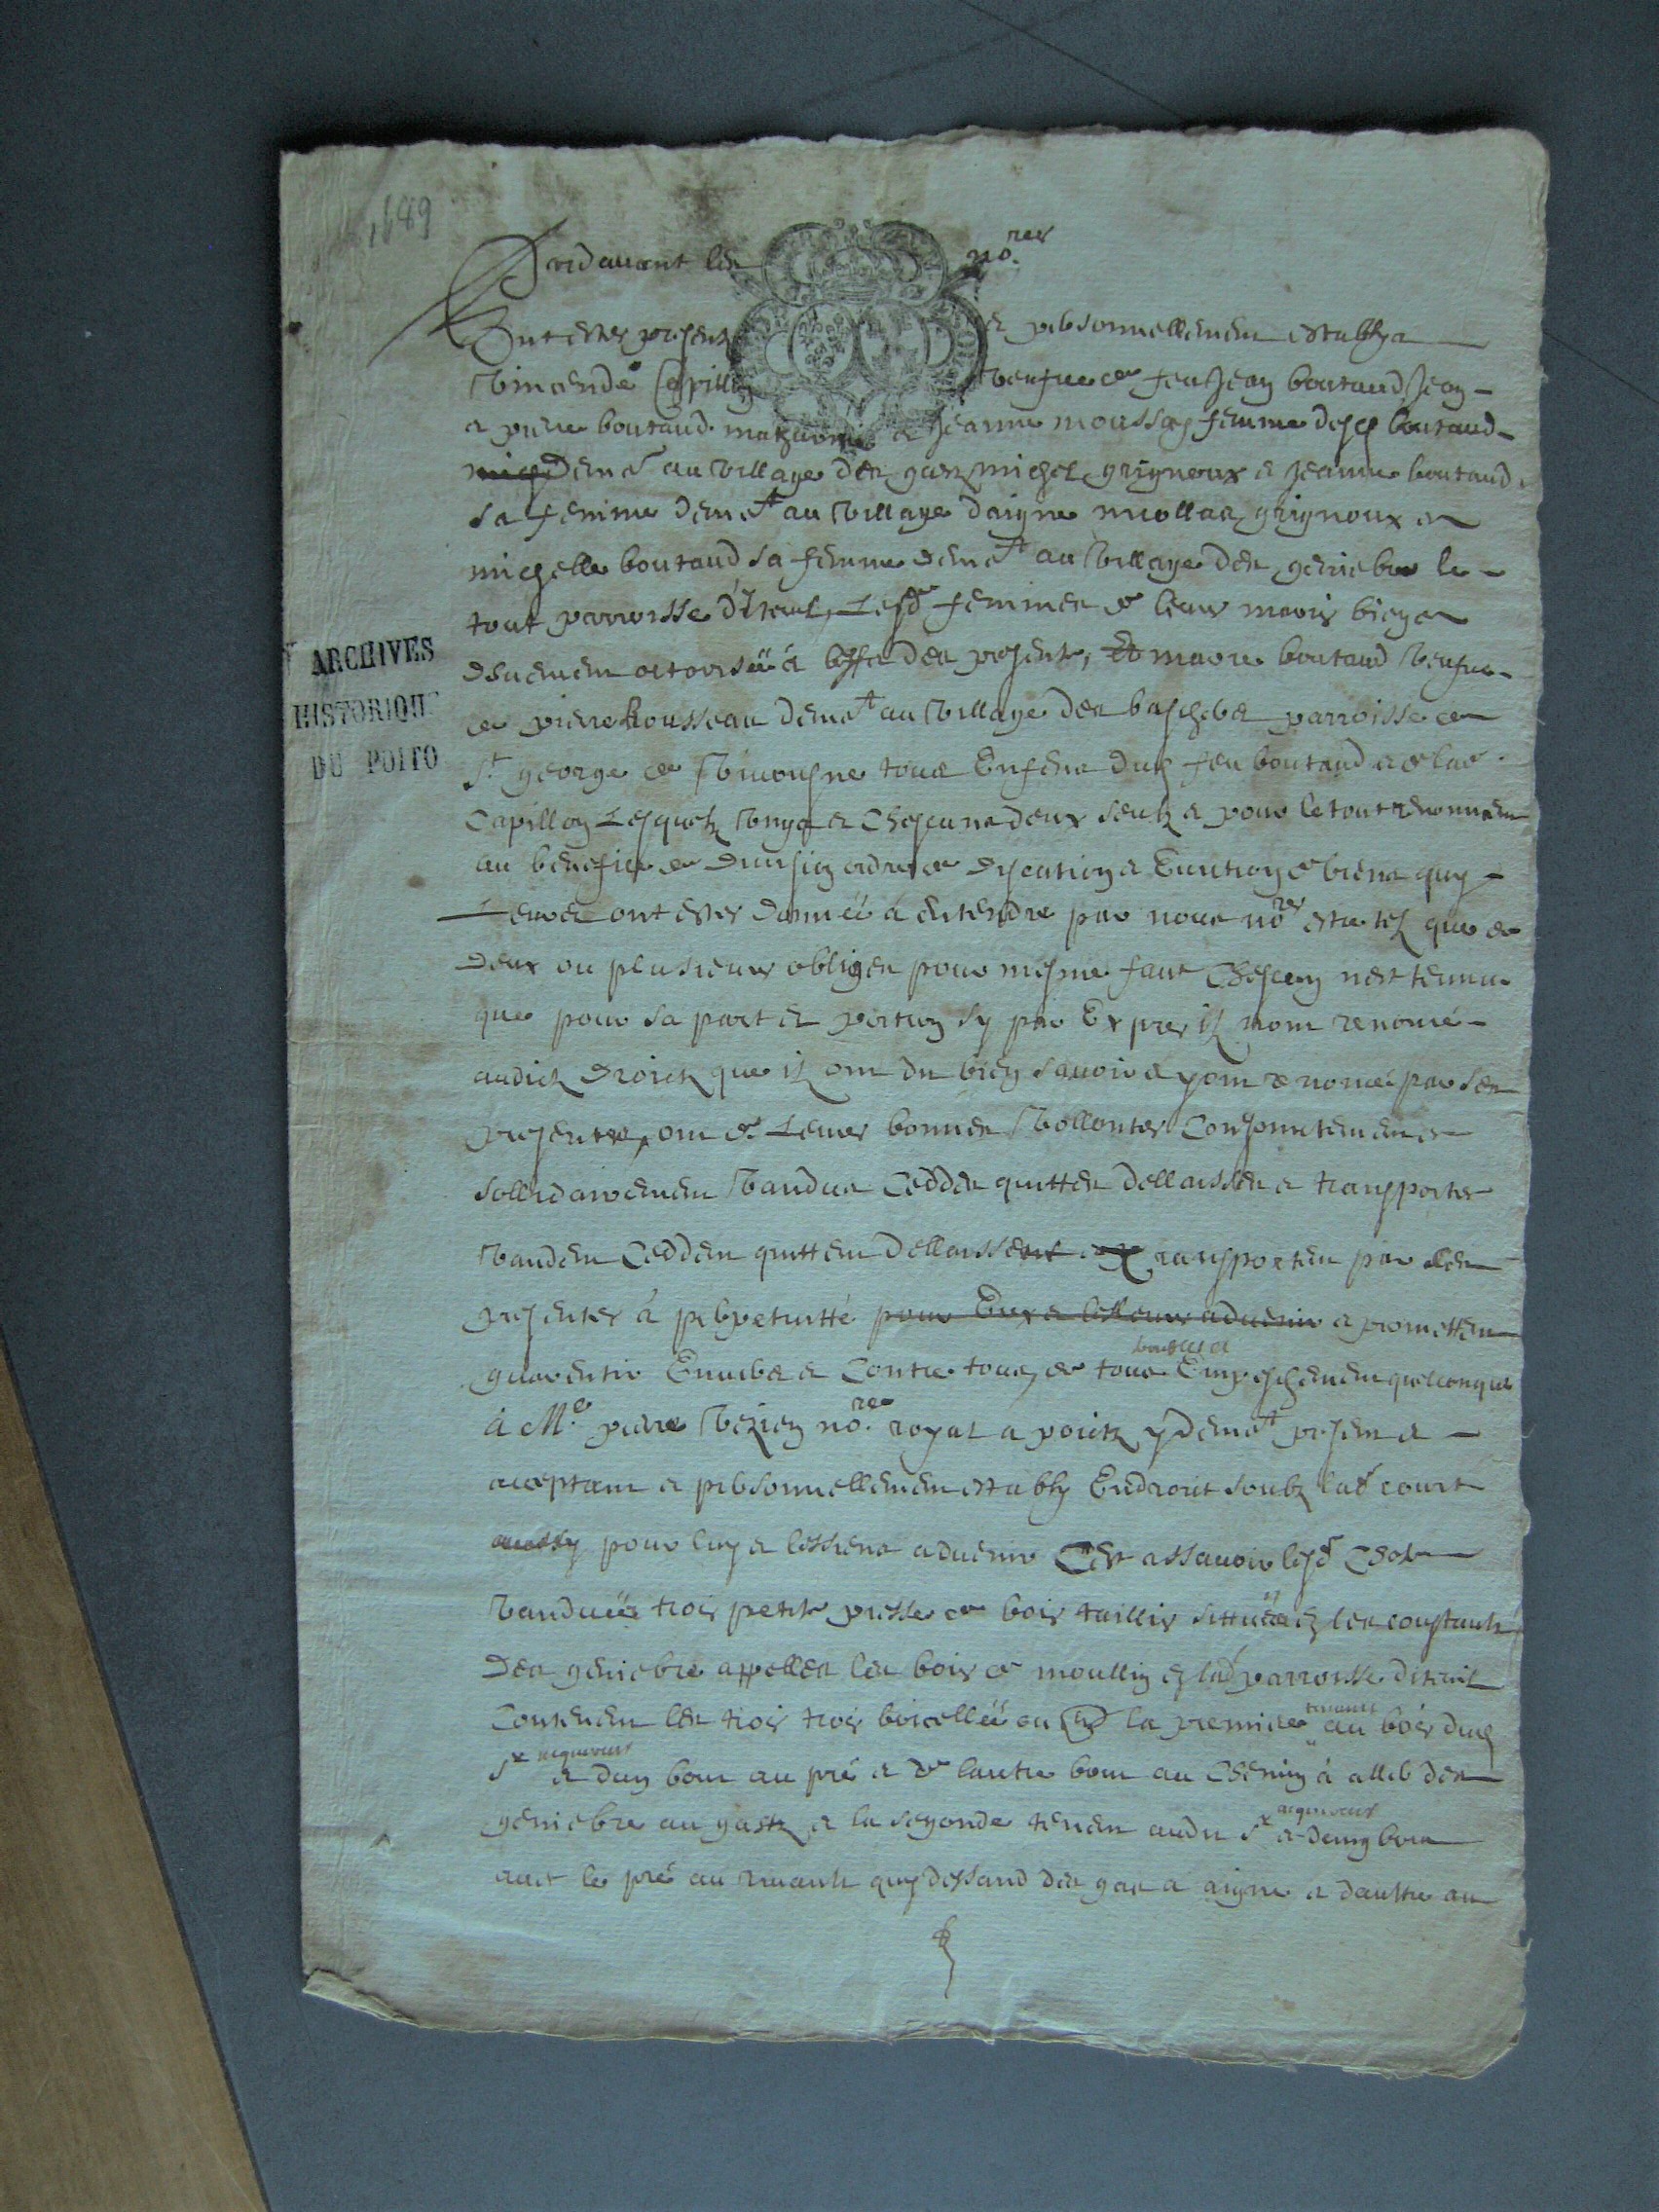 1689
Pardavant les no.res
Ont estes presens et personnellement establys
Vincende Capillon veufue de feu Jean boutaud Jean
et pierre boutaud et Jeanne moussay femme boutaud
dem.t au village des gas michel grignoux et Jeanne boutaud
sa femme dem.t au village daigne grignoux et
michelle boutaud sa femme dem.t au village des geniebre le
tout parroisse d'Iteuil, Lesd femmes de leurs maris bien et
deuement octorisées à leffet des presents, Et marie boutaud veufue
de pierre Rousseau dem.t au village des parroisse de
S.t george de Vivousne tous Enfens dud feu boutaud et de lad
Capillon Lesquelz Vng et Chescuns deux seulz et pour le tout renonsent
au benefice de division ordre de discution et Euiction de biens quy
Leurs ont estes donné à entendre par nous no.res estre tel que de
deux ou plusieurs obliges pour mesme fait Chescun nest tennu
que pour sa part et portion sy par Expres ilz nont renoncé
audict droict que ilz ont dit bien savoir et y ont renoncé par ses
presentes, ont de Leurs bonnes Vollontes Conjointement et
sollidairement Vandus Ceddes quittes dellaisses et transportes
Vandent Ceddent quittent dellaissent et transportent par ses
presentes à perpetuitté pour Eux et les leurs aduenir et promettent
guarentir Enuers et Contre tous, de tous troubles et Empeschement quelconque
à M.e pierre Vezien no.re royal a poictz y dem.t present et
aceptant et personnellement estably Endroit soubz lad court
aussy pour luy et lessiens aduenir Cest assauoir lesd Choses
Vandues trois petite piesse de bois taillis sittuées es les coustault
des geniebre appelles les bois de moullin en lad parroisse diteuil
Contenent les trois trois boicellée ou la premiere tenant au bois dud
S.r aquereur et dun bout au pré et de lautre bout au Chemin à aller des
geniebre au gastz et la segonde tenent audit S.r aquereur et dung bout
aut le pré au ruault quy dessand des gas a aigne et daultre au
ARCHIVES
HISTORIQU
DU POITO